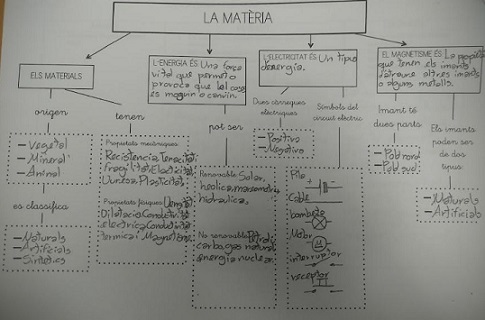 LA MATÈRIA
ELS MATERIALS
L'ENERGIA ÉS Una força
vital que permet o
provoca que tal cosa
es mogui o canvïi.
L'ELECTRICITAT ÉS Un tipus
d'energia.
EL MAGNETISME ÉS La propietat
que tenen els imants
d'atraure altres imants
o alguns metalls.
origen
tenen
pot ser
Dues càrregues
elèctriques
Símbols del
circuit elèctric
Imant té
dues parts
Els imants
poden ser
de dos
tipus
- Vegetal
- Mineral
- Animal
Propietats mecàniques
Resistencia Tenacitat
fragilitat Elasticitat
Duresa Plasticitat
Propietats físiques Densitat
Dilatació Conductivitat
electrica Conductivitat
termica i Magnetisme
Renovable Solar,
heolica, maremotriu
hidraulica.
No renovable Petroli
carbó gas natural
energia nuclear.
- Positiva
- Negativa
Pila
Cable
bombeta
Motor
M
interruptor
receptor
- Pol nord
- Pol sud
- Naturals
- Artificials
es classifica
- Naturals
- Artificials
- Sintètics